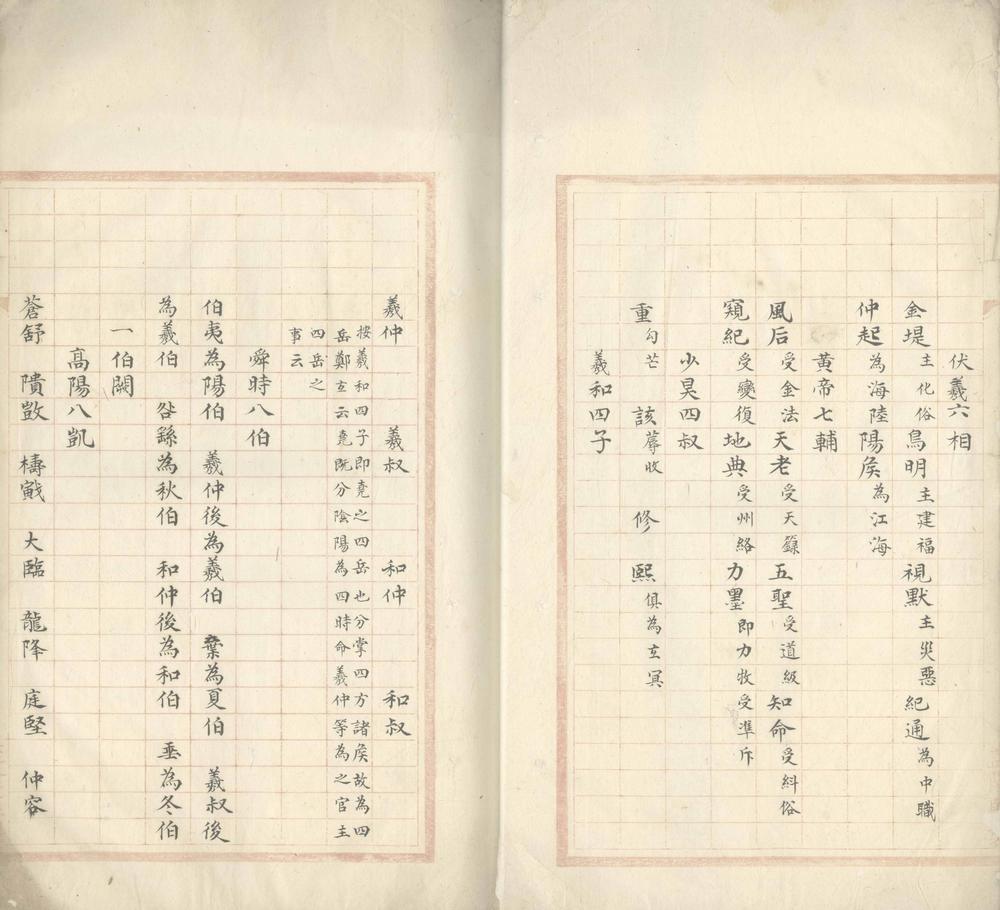 伏羲六相
金堤主化俗鳥明主建福視默主災惡紀通為中職
仲起為海陸陽侯為江海
黃帝七輔
風后受金法天老受天籙五聖受道級知命受糾俗
窺紀受變復地典受州絡力墨即力牧受準斥
少昊四叔
重勾芒 該蓐收 修 熙俱為玄冥
羲和四子
羲仲 羲叔 和仲 和叔
按羲和四子即堯之四岳也分掌四方諸侯故為四
岳鄭玄云堯既分陰陽為四時命羲仲等為之官主
四岳之
事云
舜時八伯
伯夷為陽伯 羲仲後為羲伯 棄為夏伯 羲叔後
為羲伯 咎繇為秋伯 和仲後為和伯 垂為冬伯
一伯闕
高陽八凱
蒼舒 隤敳 檮戭 大臨 龍降 庭堅 仲容